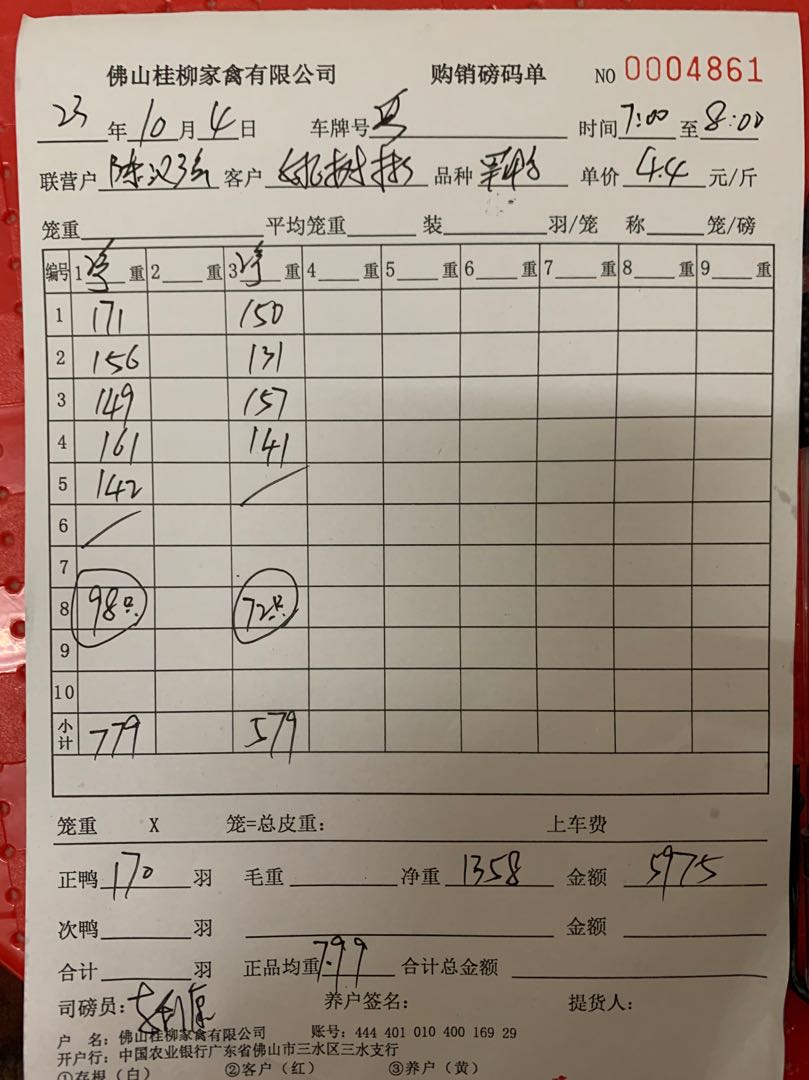 佛山桂柳家禽有限公司 购销磅码单 NO 0004861
23 年 10 月 4 日 车牌号 时间 7:00 至 8:00
联营户 陈汉强 客户 品种 单价 4.4 元/斤
笼重 平均笼重 装 羽/笼 称 笼/磅
编号 1 净 重 2 重 3 净 重 4 重 5 重 6 重 7 重 8 重 9 重
1 171 150
2 156 131
3 149 157
4 161 141
5 142
6
7
8 98只 72只
9
10
小计 779 579
笼重 X 笼=总皮重: 上车费
正鸭 170 羽 毛重 净重 1358 金额 5975
次鸭 羽 金额
合计 羽 正品均重 7.99 合计总金额
司磅员: 养户签名: 提货人:
户 名: 佛山桂柳家禽有限公司 账号: 444 401 010 400 169 29
开户行: 中国农业银行广东省佛山市三水区三水支行
①存根(白) ②客户(红) ③养户(黄)